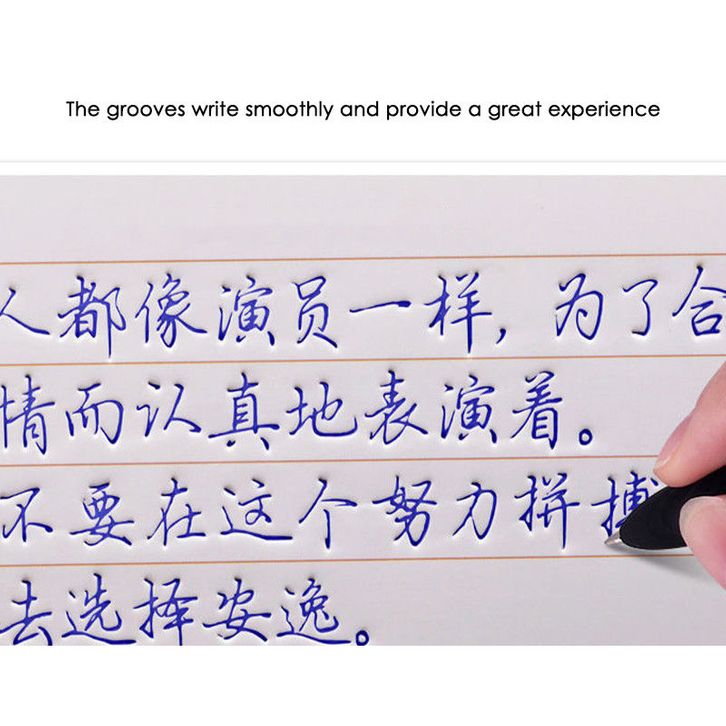 The grooves write smoothly and provide a great experience
人都像演员一样，为了合
情而认真地表演着。
不要在这个努力拼搏
去选择安逸。